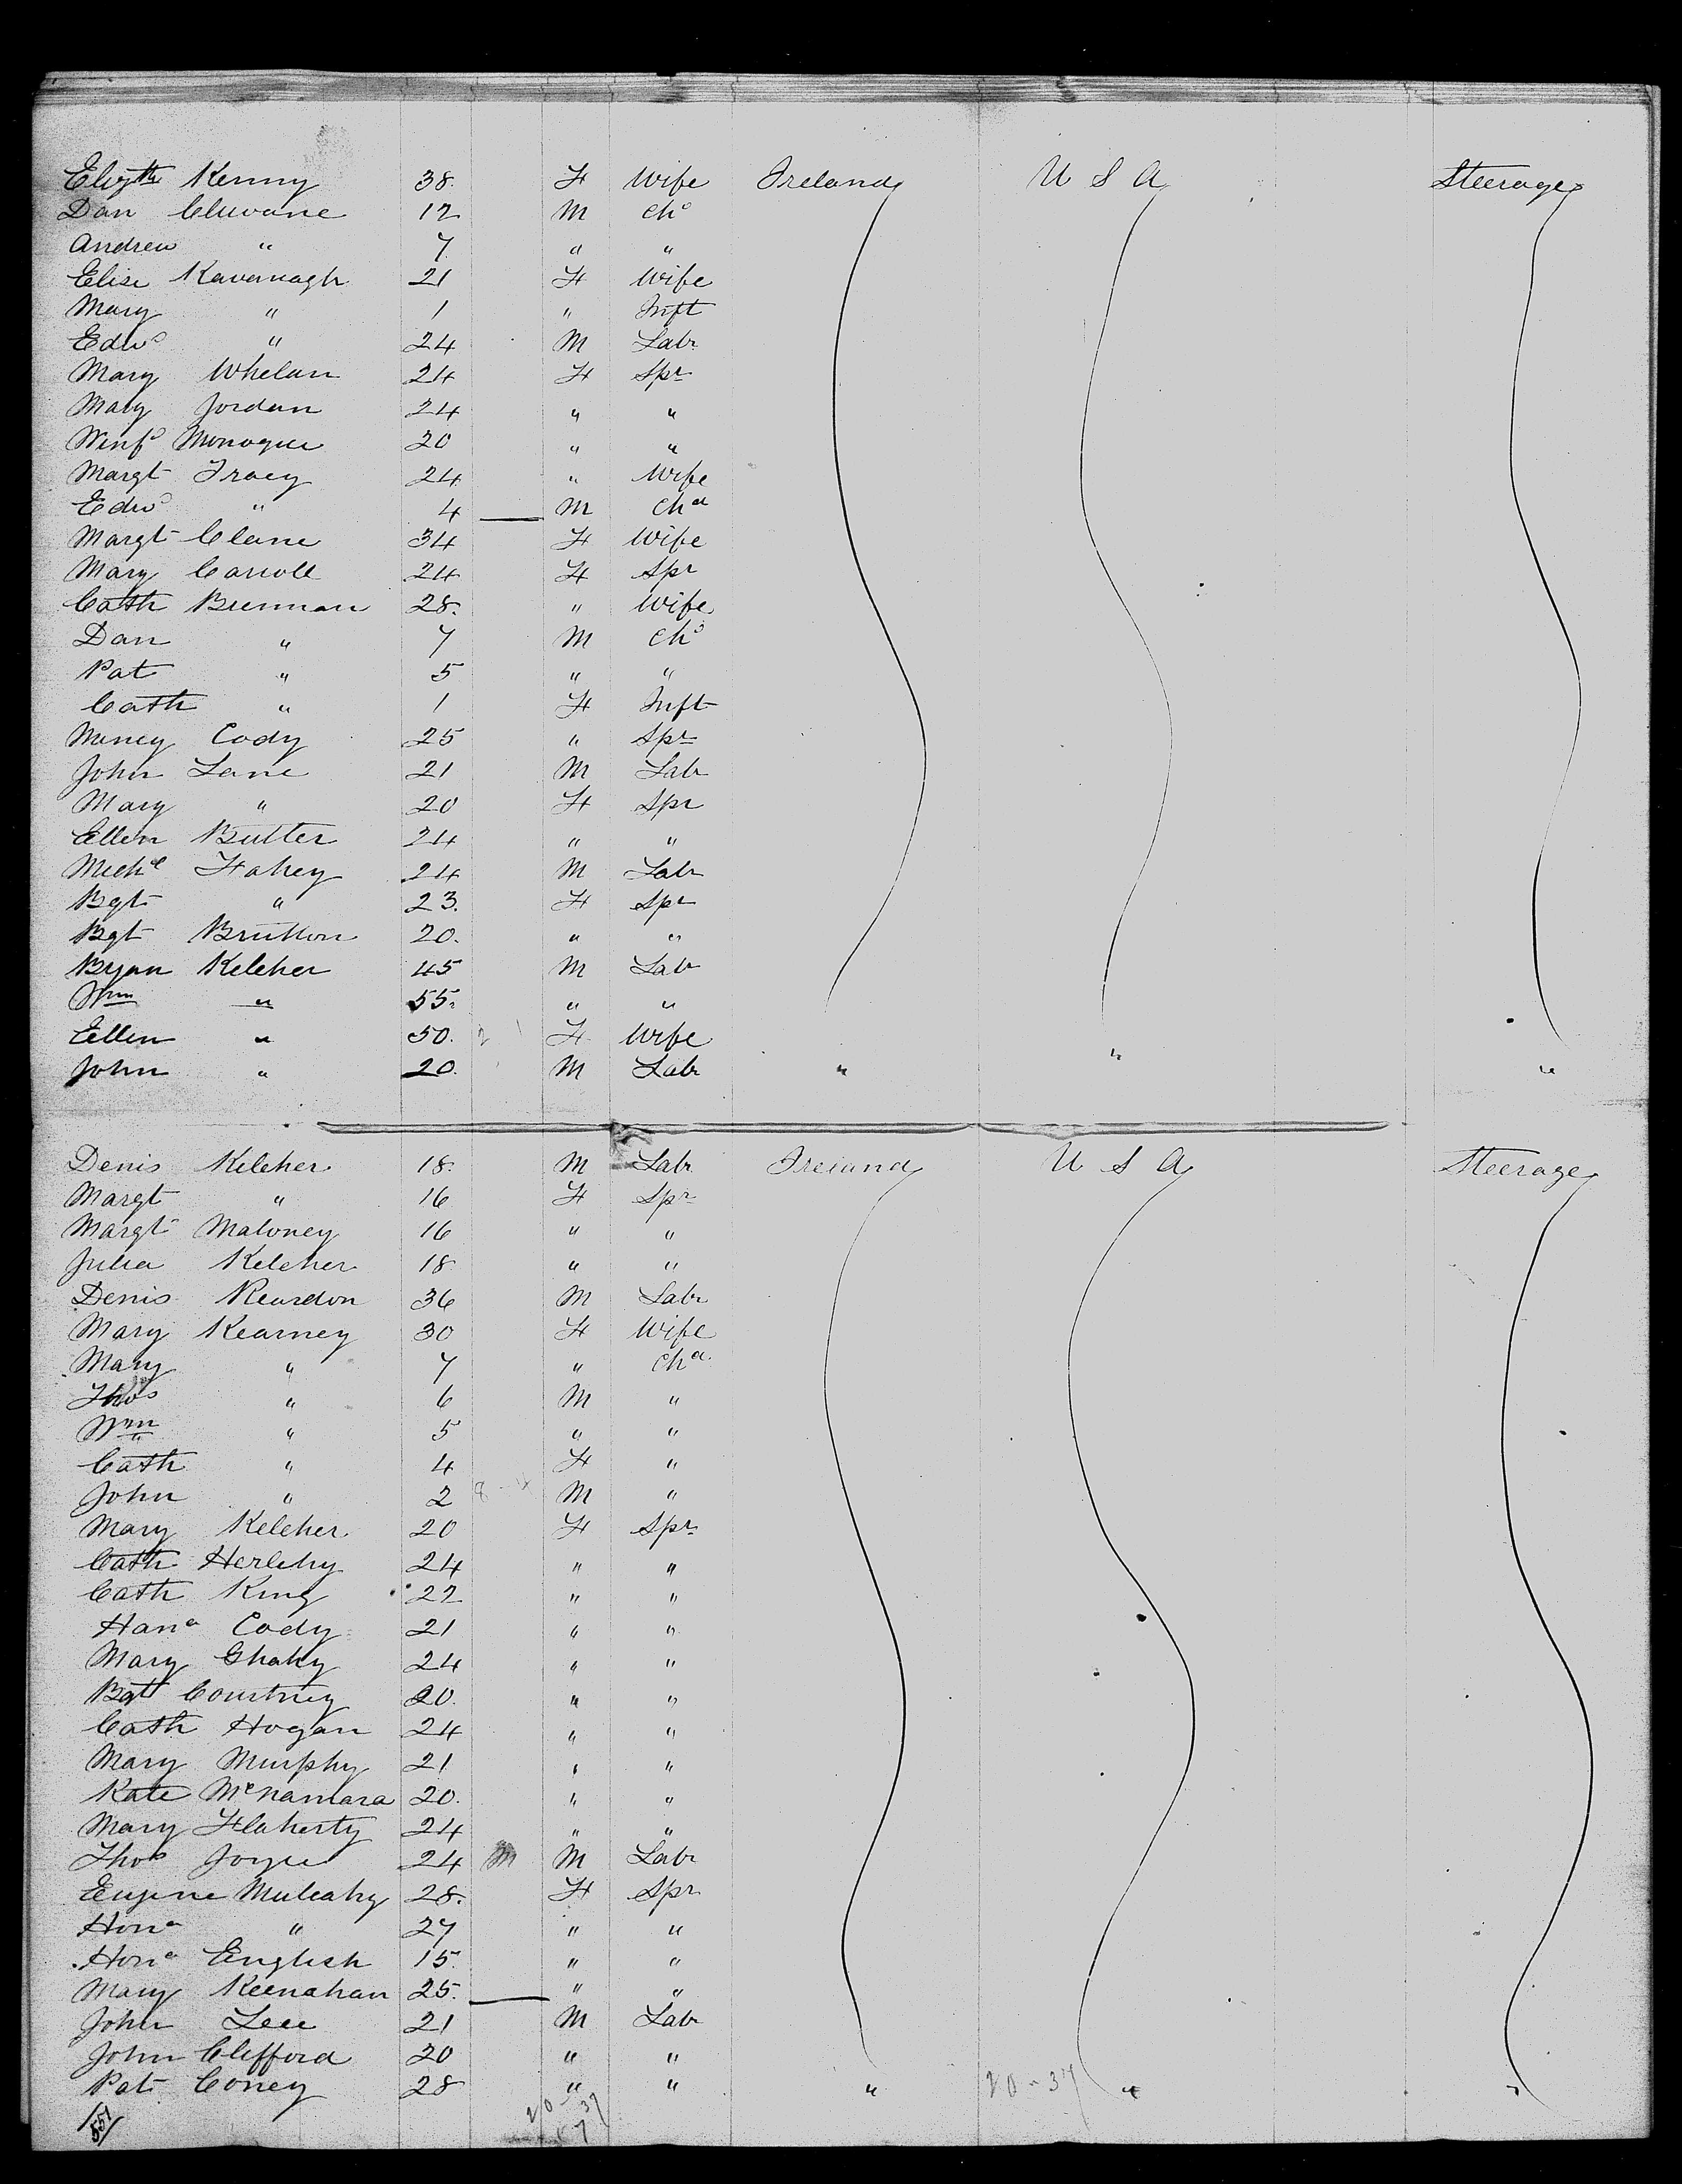 Elizth Kenny 38 F Wife Ireland U S A Steerage
Dan Cluvane 12 M Chd
Andrew " 7 " "
Elise Kavanagh 21 F Wife
Mary " 1 " Inft
Edwd " 24 M Labr
Mary Whelan 24 F Spr
Mary Jordan 24 " "
Winfd Monogue 20 " "
Margt Tracy 24 " Wife
Edwd " 4 M Chd
Margt Clane 34 F Wife
Mary Carroll 24 F Spr
Cath Brennan 28. " Wife
Dan " 7 M Chd
Pat " 5 " "
Cath " 1 F Inft
Cody 25 " Spr
John Lane 21 M Labr
Mary " 20 F Spr
Ellen Butter 24 " "
Michl Fahey 24 M Labr
Bgt " 23. F Spr
Bgt Brutton 20. " "
Bryan Keleher 45 M Labr
Wm " 55. " "
Ellen " 50. 2 F Wife
John " 20. M Labr " " "
Denis Keleher 18. M Labr Ireland U S A Steerage
Margt " 16 F Spr
Margt Maloney 16 " "
Julia Keleher 18 " "
Denis Reardon 36 M Labr
Mary Kearney 30 F Wife
Mary " 7 " Chd
Thos " 6 M "
Wm " 5 " "
Cath " 4 F "
John " 2 M "
Mary Keleher 20 F Spr
Cath Herlehy 24 " "
Cath King 22 " "
Hana Cody 21 " "
Mary 24 " "
Bgt Courtney 20. " "
Cath Hogan 24 " "
Mary Murphy 21 " "
Kate McNamara 20. " "
Mary Flaherty 24 " "
Thos Joyce 24 M M Labr
Eugene Mulcahy 28. F Spr
Hona " 27 " "
Hona English 15. " "
Mary Keenahan 25. " "
John Lee 21 M Labr
John Clifford 20 " "
Pat Coney 28 " " " 20-37 " "
551 20-37